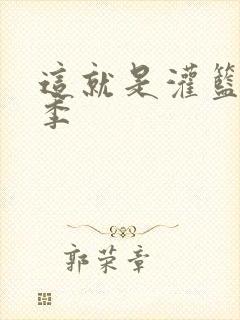 這就是灌籃
季
郭荣章